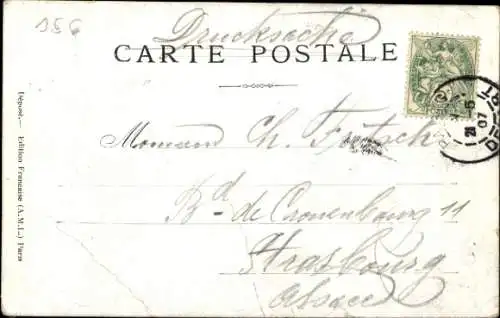 356
Drucksache
CARTE POSTALE
Déposé. — Edition Française (A.M.L.) Paris
21
07
Ch. Fritsch
Bd de Cronenbourg 11
Strasbourg
Alsace